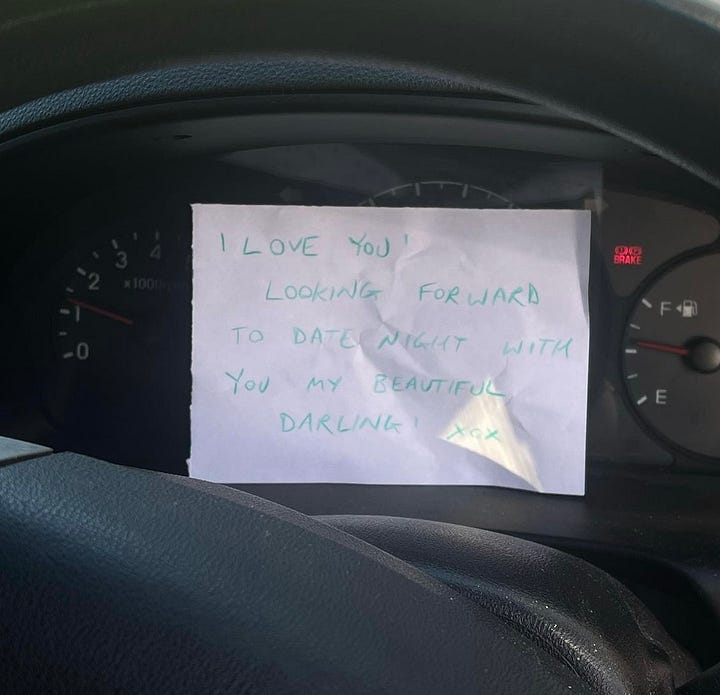 I LOVE YOU!
LOOKING FORWARD
TO DATE NIGHT WITH
YOU MY BEAUTIFUL
DARLING! XOX
4
3
2
x1000
1
0
BRAKE
F
E